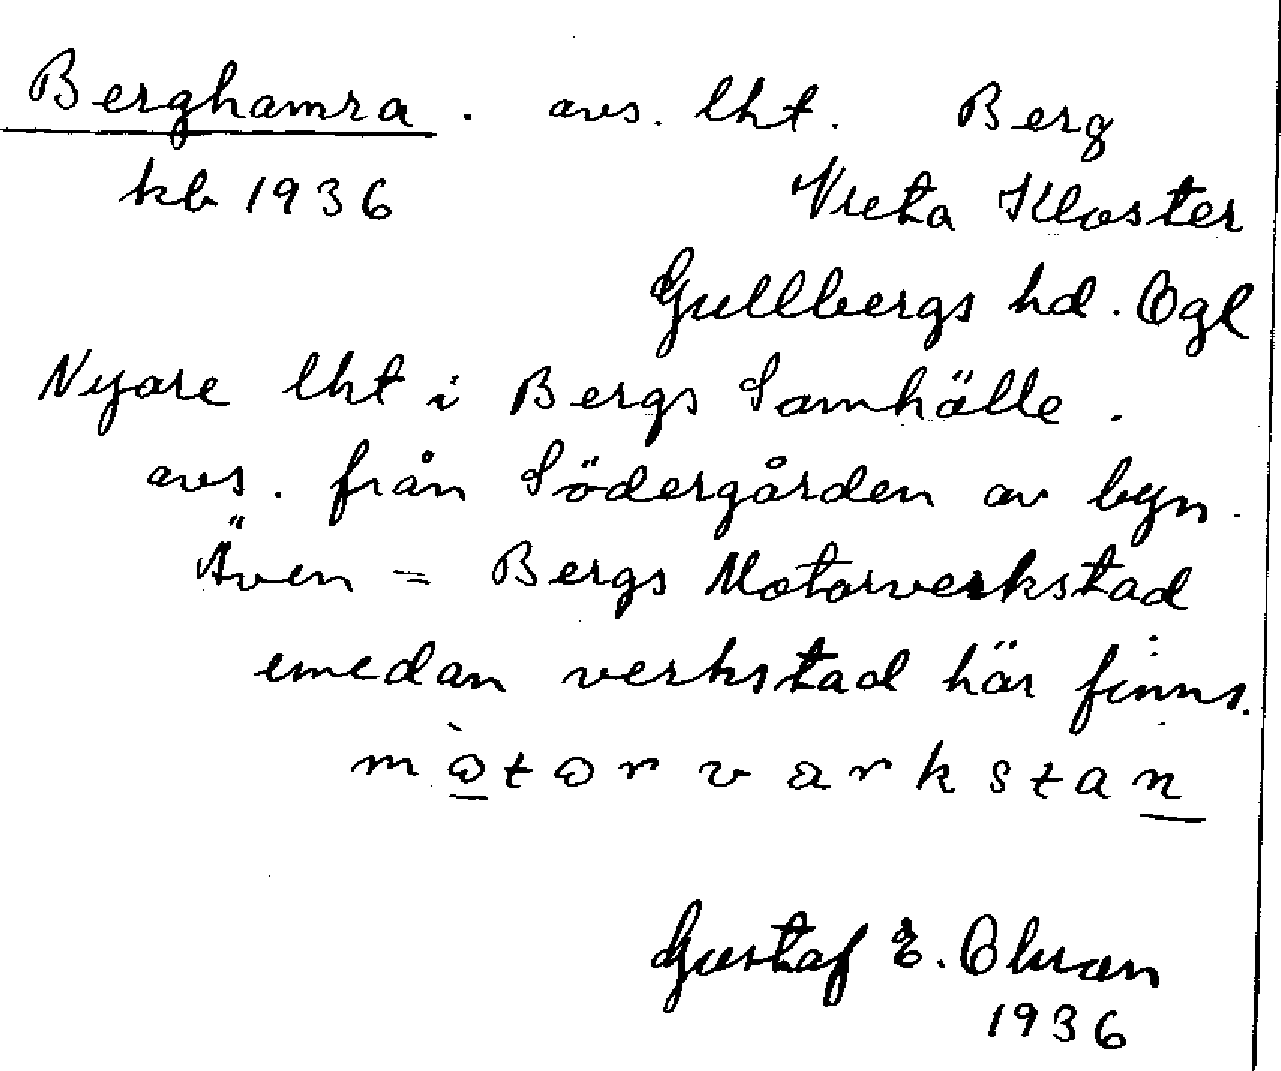 Berghamra. avs. lht. Berg
kb 1936 Vreta Kloster
Gullbergs hd. Ögl
Nyare lht i Bergs Samhälle.
avs. från Södergården av byn.
Även = Bergs Motorverkstad
emedan verkstad här finns.
mòtorvarkstan
Gustaf E. Olsson
1936